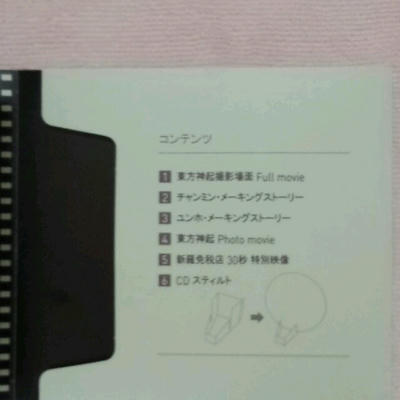 コンテンツ
1 東方神起撮影場面 Full movie
2 チャンミン・メーキングストーリー
3 ユンホ・メーキングストーリー
4 東方神起 Photo movie
5 新羅免税店 30秒 特別映像
6 CD スティルト